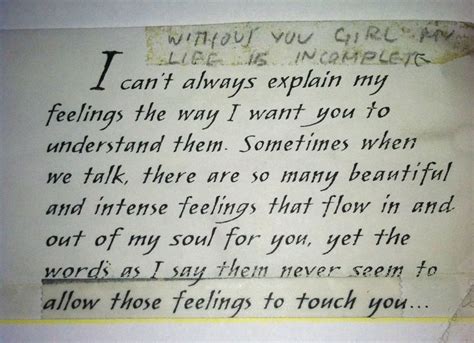 WITHOUT YOU GIRL MY
LIFE IS INCOMPLETE
I can't always explain my
feelings the way I want you to
understand them. Sometimes when
we talk, there are so many beautiful
and intense feelings that flow in and
out of my soul for you, yet the
words as I say them never seem to
allow those feelings to touch you...